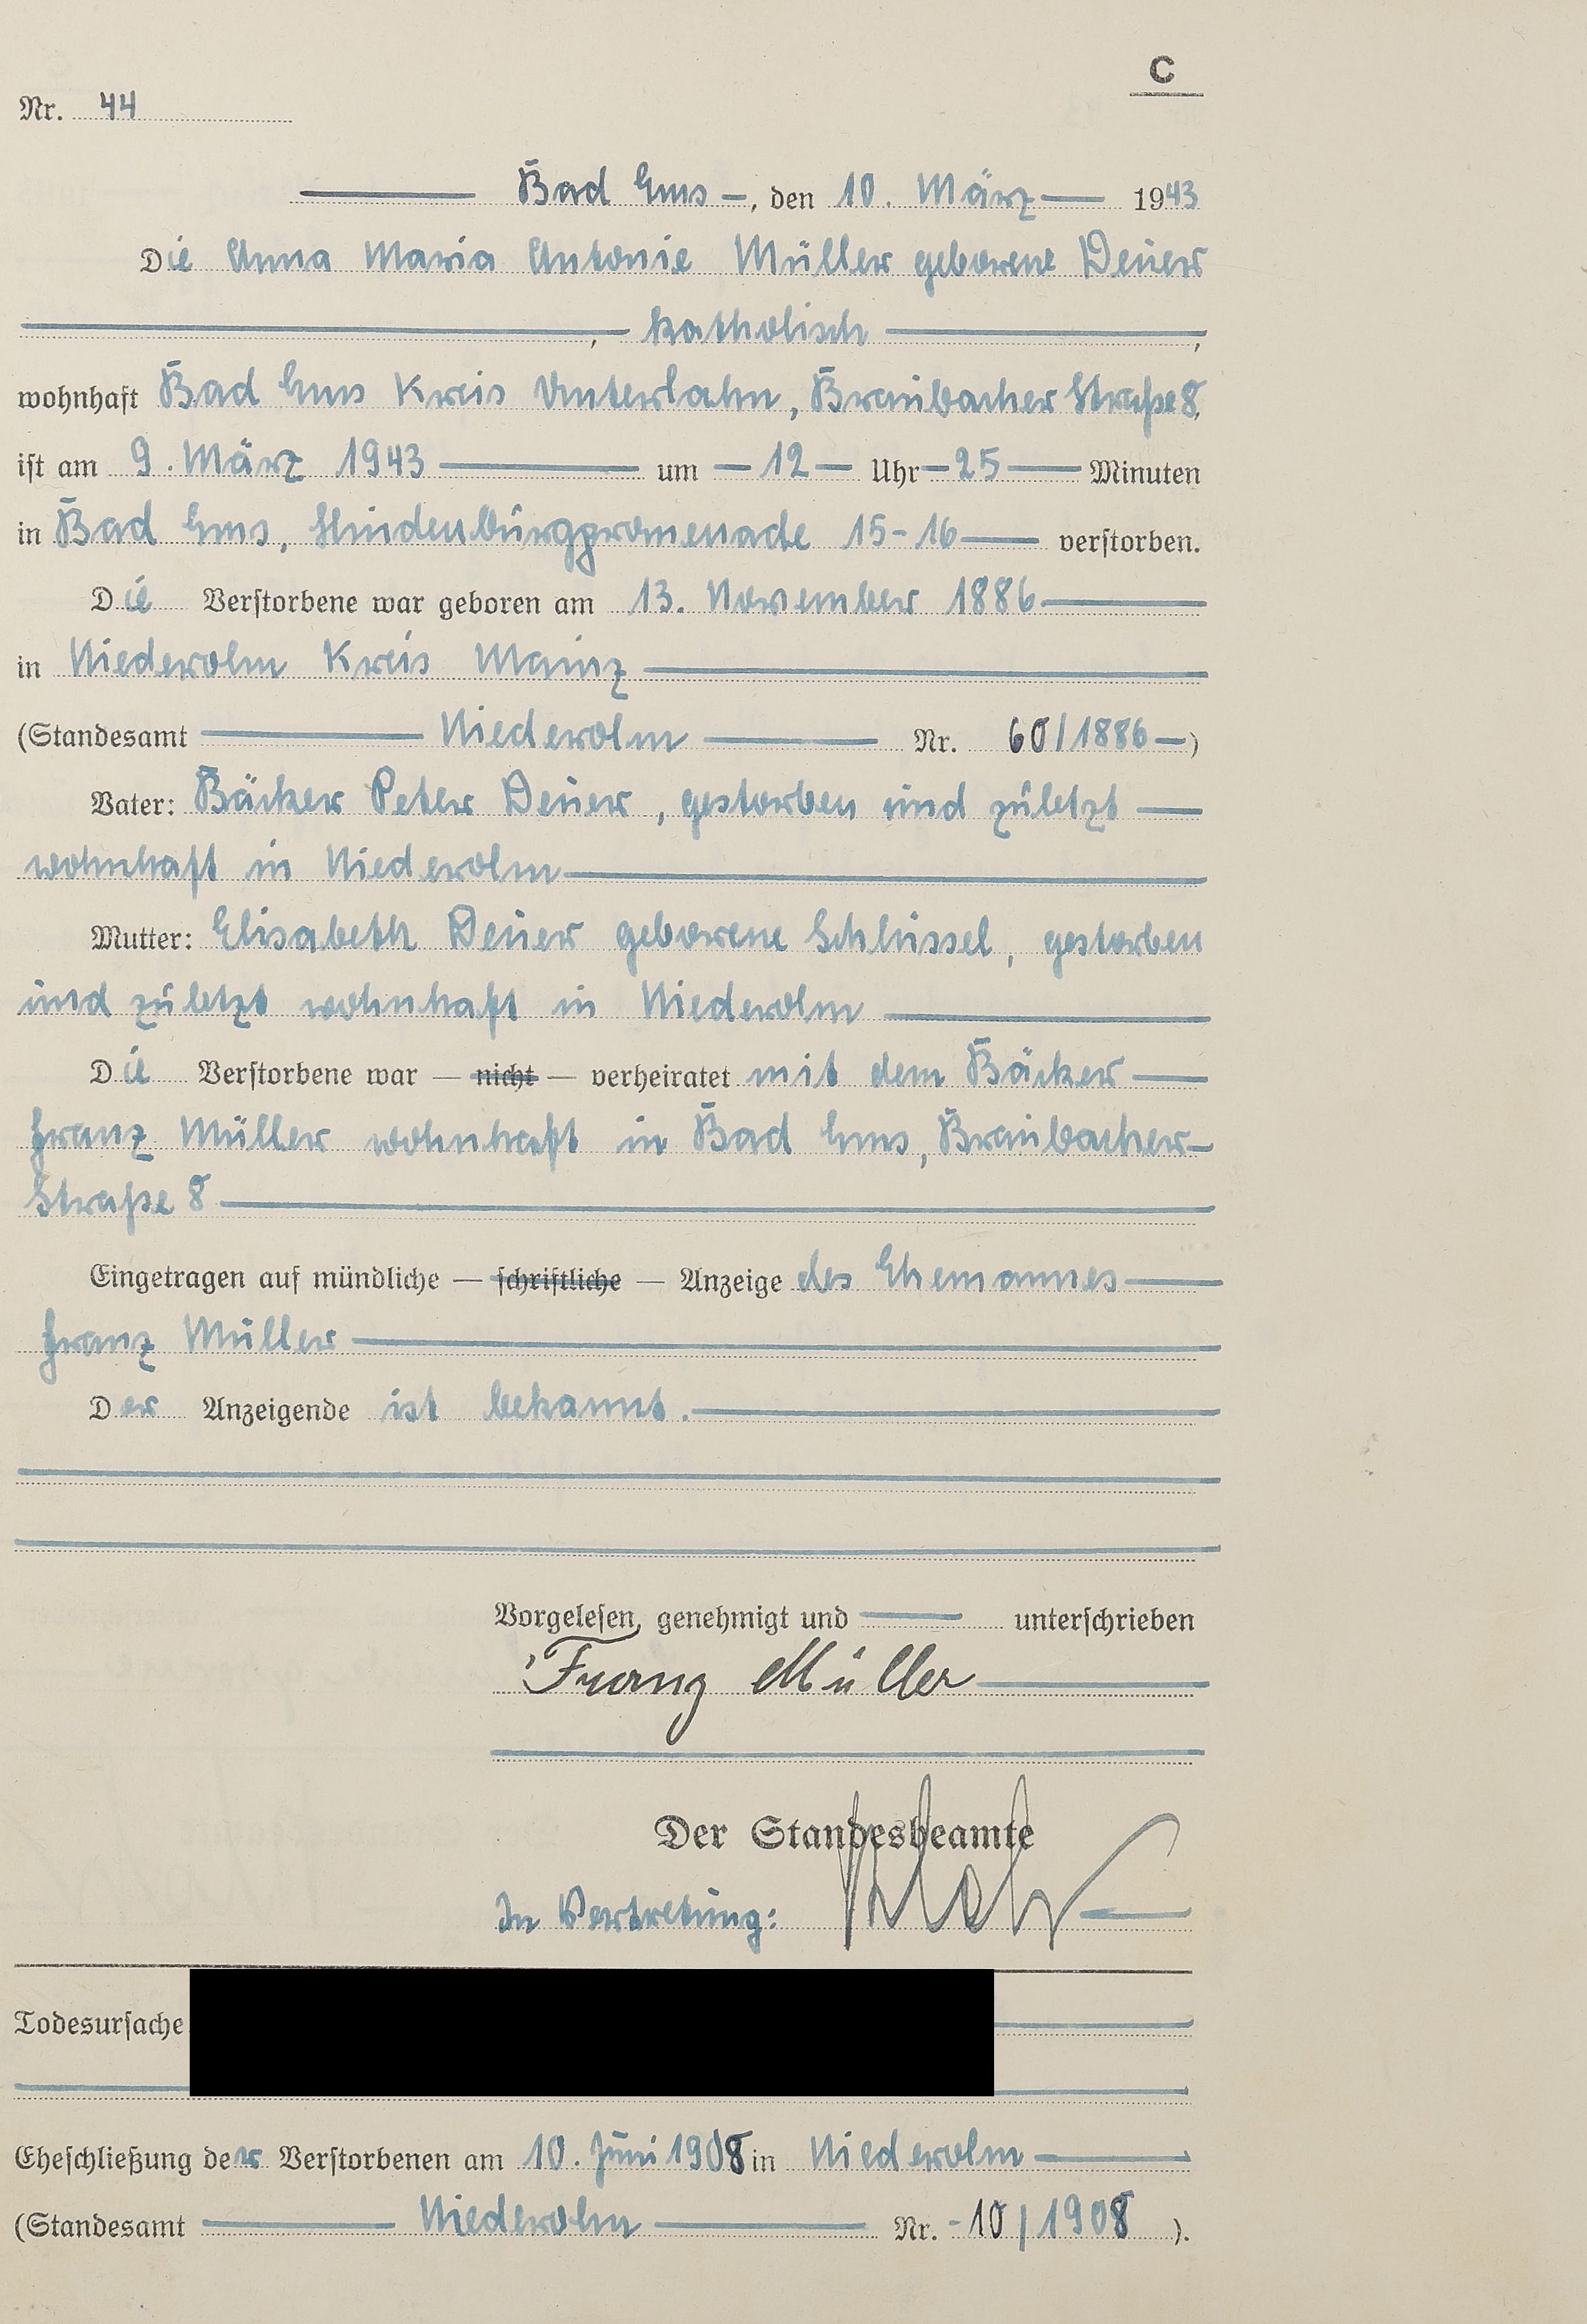 C
Nr. 44
Bad Ems –, den 10. März 1943
Die Anna Maria Antonie Müller geborene Deuer
, katholisch ,
wohnhaft Bad Ems Kreis Unterlahn, Braubacher Straße 8,
ist am 9. März 1943 um – 12 – Uhr – 25 Minuten
in Bad Ems, Hindenburgpromenade 15-16 verstorben.
Die Verstorbene war geboren am 13. November 1886
in Niederolm Kreis Mainz
(Standesamt Niederolm Nr. 60/1886 –)
Vater: Bäcker Peter Deuer, gestorben und zuletzt
wohnhaft in Niederolm
Mutter: Elisabeth Deuer geborene Schlüssel, gestorben
und zuletzt wohnhaft in Niederolm
Die Verstorbene war — nicht — verheiratet mit dem Bäcker
Franz Müller wohnhaft in Bad Ems, Braubacher-
Straße 8
Eingetragen auf mündliche — schriftliche — Anzeige des Ehemannes
Franz Müller
Der Anzeigende ist bekannt.
Vorgelesen, genehmigt und unterschrieben
Franz Müller
Der Standesbeamte
In Vertretung:
Todesursache
Eheschließung der Verstorbenen am 10. Juni 1908 in Niederolm
(Standesamt Niederolm Nr. - 10/1908 ).